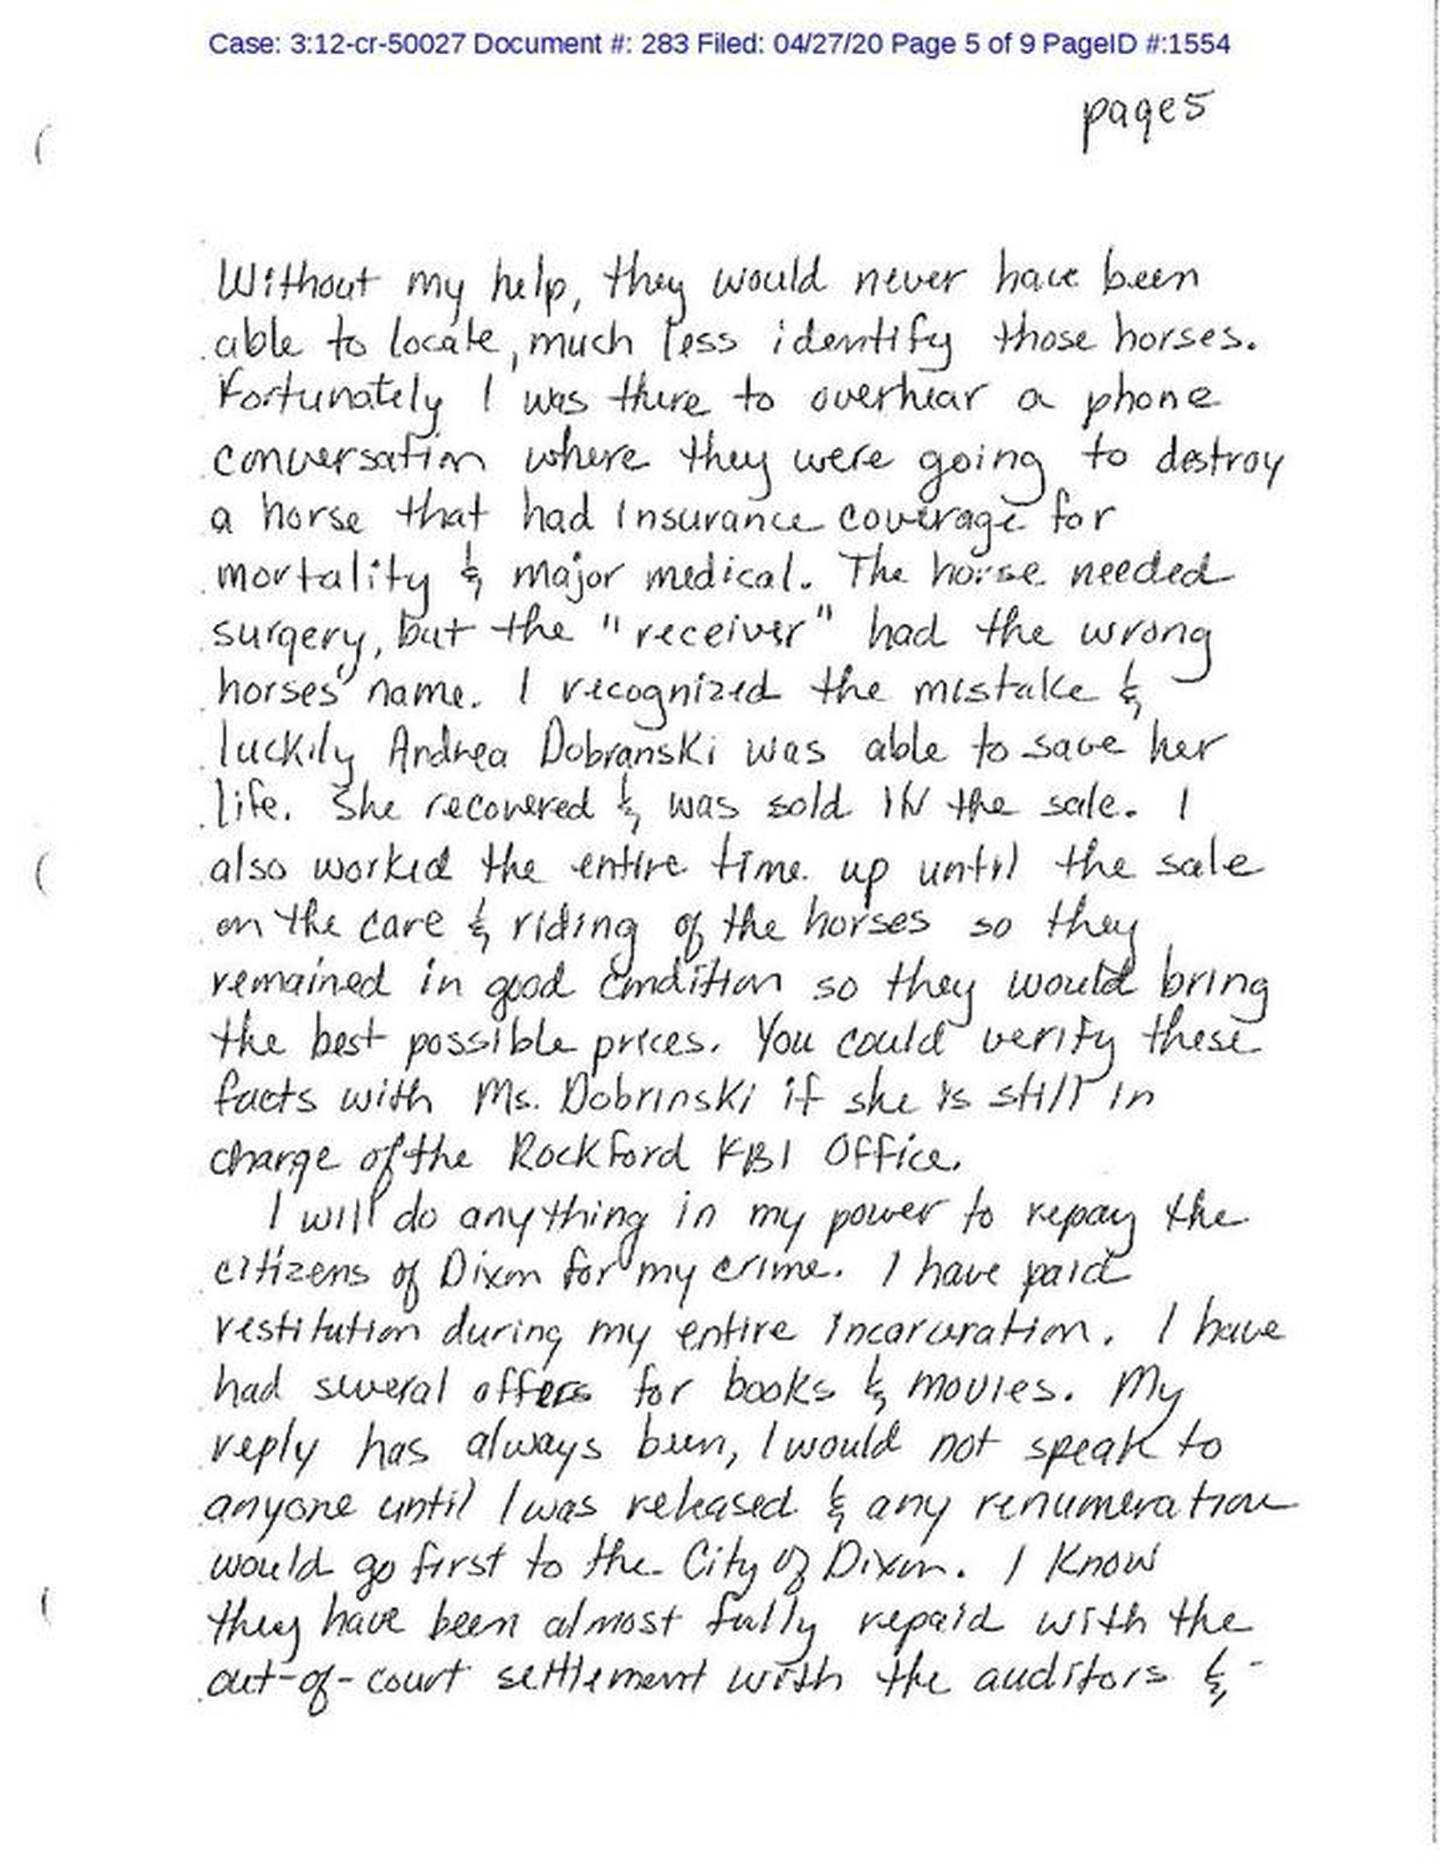 Case: 3:12-cr-50027 Document #: 283 Filed: 04/27/20 Page 5 of 9 PageID #:1554
page 5
Without my help, they would never have been
able to locate, much less identify those horses.
Fortunately I was there to overhear a phone
conversation where they were going to destroy
a horse that had insurance coverage for
mortality & major medical. The horse needed
surgery, but the "receiver" had the wrong
horses' name. I recognized the mistake &
luckily Andrea Dobranski was able to save her
life. She recovered & was sold IN the sale. I
also worked the entire time up until the sale
on the care & riding of the horses so they
remained in good condition so they would bring
the best possible prices. You could verify these
facts with Ms. Dobrinski if she is still in
charge of the Rockford FBI Office.
I will do anything in my power to repay the
citizens of Dixon for my crime. I have paid
restitution during my entire incarceration. I have
had several offers for books & movies. My
reply has always been, I would not speak to
anyone until I was released & any renumeration
would go first to the City of Dixon. I know
they have been almost fully repaid with the
out-of-court settlement with the auditors &